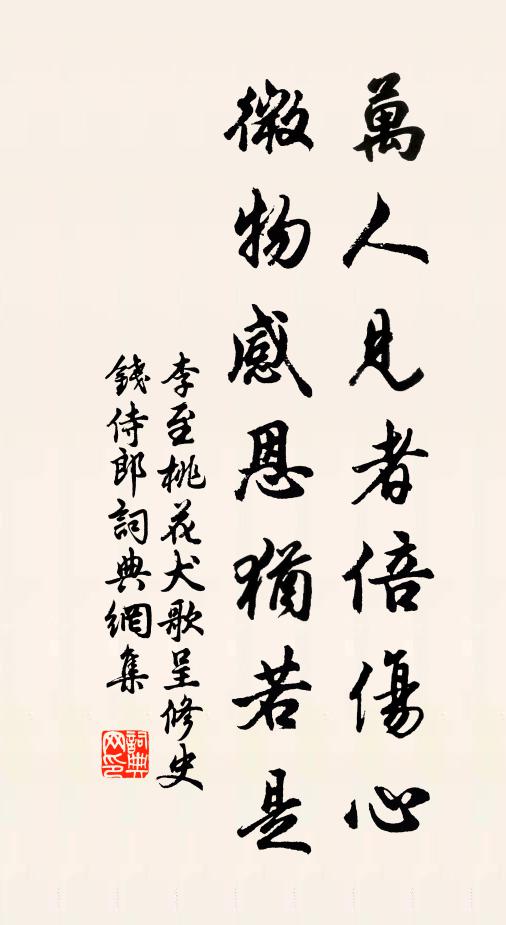 萬人見者倍傷心
微物感恩猶若是
李至桃花犬歌呈修史
錢侍郎詞典網集
詞典
网印